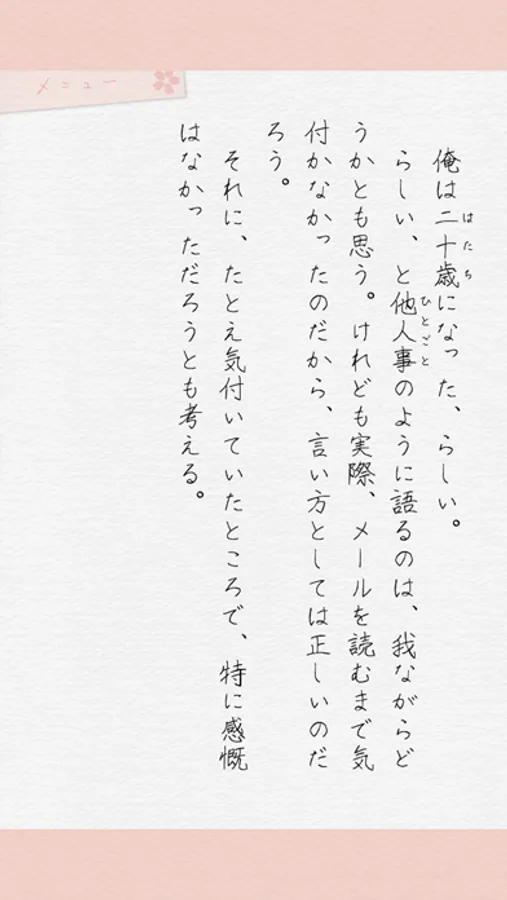 メニュー
俺は二十歳になった、らしい。
はたち
らしい、と他人事のように語るのは、我ながらど
ひとごと
うかとも思う。けれども実際、メールを読むまで気
付かなかったのだから、言い方としては正しいのだ
ろう。
それに、たとえ気付いていたところで、特に感慨
はなかっただろうとも考える。